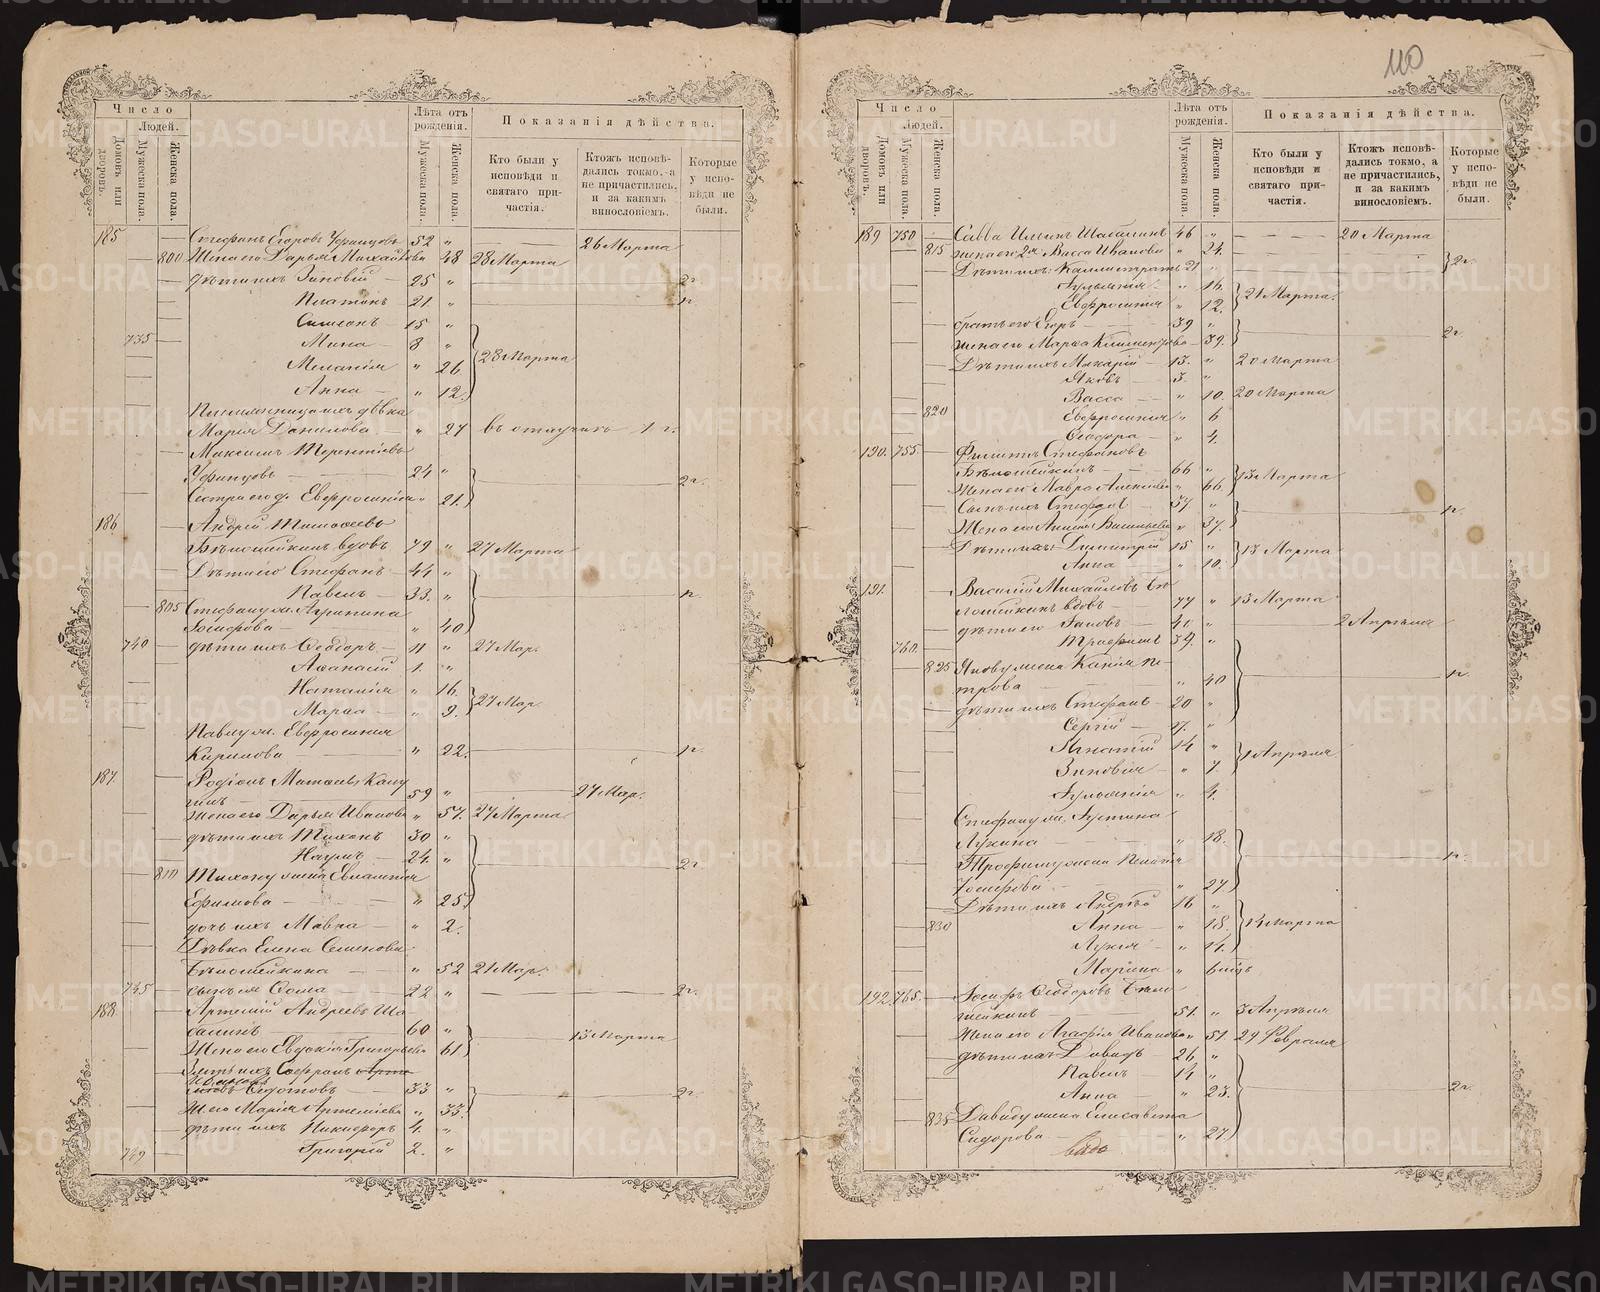 110
Число
Людей.
Домовъ или дворовъ.
Мужеска пола.
Женска пола.
Лѣта отъ рожденія.
Мужеска пола.
Женска пола.
Показанія дѣйства.
Кто были у исповѣди и святаго причастія.
Ктожъ исповѣдались токмо, а не причастились, и за какимъ винословіемъ.
Которые у исповѣди не были.
185 Стефанъ Егоровъ Уфинцовъ 52 " 26 Марта
800 Жена его Дарья Михайлова " 48 28 Марта
дѣти ихъ Зиновій 25 " 2 г.
Платонъ 21 "
Симеонъ 15 "
735 Мина 8 "
Меланія " 26 28 Марта
Анна " 12.
Марія Данилова " 27 въ отлучкѣ 1 г.
Максимъ Терентіевъ
Уфинцовъ 24 "
Сестра его д. Евфросинія " 21. 2 г.
186 Андрей Тимофеевъ
Бѣлошейкинъ вдовъ 79 " 27 Марта
Дѣти его Стефанъ 44 "
Павелъ 33. "
805 Стефану ж. Агрипина
Іосифова " 40
740 дѣти ихъ Ѳеодоръ 11 " 27 Мар.
Аѳанасій 1. "
Наталія " 16.
Марѳа " 9. 27 Мар.
Павлу ж. Евфросинія
Кирилова " 22.
187. Родіонъ
59 " 27 Мар.
жена его Дарья Иванова " 57. 27 Марта
дѣти ихъ Тихонъ 30 "
Наумъ 24. " 2 г.
810 Тихону жена
Ефимова " 25
дочь ихъ Мавра " 2.
Дѣвка Елена Семенова
Бѣлошейкина " 52 21 Мар.
745 сынъ ея Ѳома 22 " 2 г.
188. Артемій Андреевъ Ша-
балинъ 60 " 13 Марта
Жена его Евдокія Григорьева 61
Зять ихъ Софронъ
Ѳедотовъ 33 " 2 г.
Ж. его Марія Артеміева " 33.
дѣти ихъ Никифоръ 4. "
749 Григорій 2. "
Число
Людей.
Домовъ или дворовъ.
Мужеска пола.
Женска пола.
Лѣта отъ рожденія.
Мужеска пола.
Женска пола.
Показанія дѣйства.
Кто были у исповѣди и святаго причастія.
Ктожъ исповѣдались токмо, а не причастились, и за какимъ винословіемъ.
Которые у исповѣди не были.
189 750 Савва Ильинъ Шабалинъ 46 " 20 Марта
815 жена его 2я Васса Иванова " 24. 2 г.
Дѣти ихъ: Каллистратъ 21 "
Іуліанія " 16.
Евфросинія " 12. 21 Марта.
братъ его Егоръ 39 " 2 г.
жена его Марѳа Климентова 39.
Дѣти ихъ Макарій 13. " 20 Марта
Яковъ 3. "
Васса " 10. 20 Марта
820 Евфросинія " 6
" 4.
190. 755. Филиппъ Стефановъ
Бѣлошейкинъ 66 " 13 Марта
Жена его Мавра Алексіева " 66.
Сынъ ихъ Стефанъ 37 "
Жена его Анисья Васильева " 37.
Дѣти ихъ: Димитрій 15 " 13 Марта
Анна " 10.
191. Василій Михайловъ Бѣ-
лошейкинъ вдовъ 77 " 13 Марта
дѣти его Іаковъ 40 " 2 Апрѣля
760. Трофимъ 39. "
825 Якову жена Пе-
трова " 40
дѣти ихъ Стефанъ 20 "
Сергій 17. "
Игнатій 14 " 1 Апрѣля
Зиновія " 7.
Іуліанія " 4.
Стефану ж. Іустина
Лукина " 18.
Трофиму жена Пелагія
Іосифова " 27
Дѣти ихъ Андрей 16 "
830 Анна " 18. 14 Марта
Лукія " 14.
Марина "
192. 765. Іосифъ Ѳеодоровъ Бѣло-
шейкинъ 51. " 3 Апрѣля
Жена его Агафія Иванова " 51. 29 Февраля
дѣти ихъ Давидъ 26 "
Павелъ 14 "
Анна " 23. 2 г.
835 Давиду жена Елисавета
Сидорова " 27